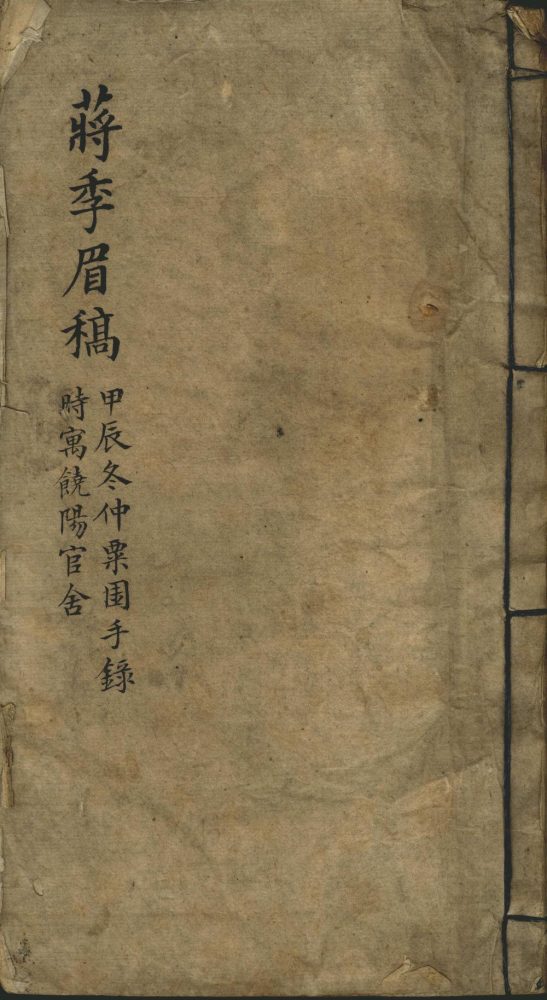 蔣季眉稿
甲辰冬仲粟園手錄
時寓饒陽官舍